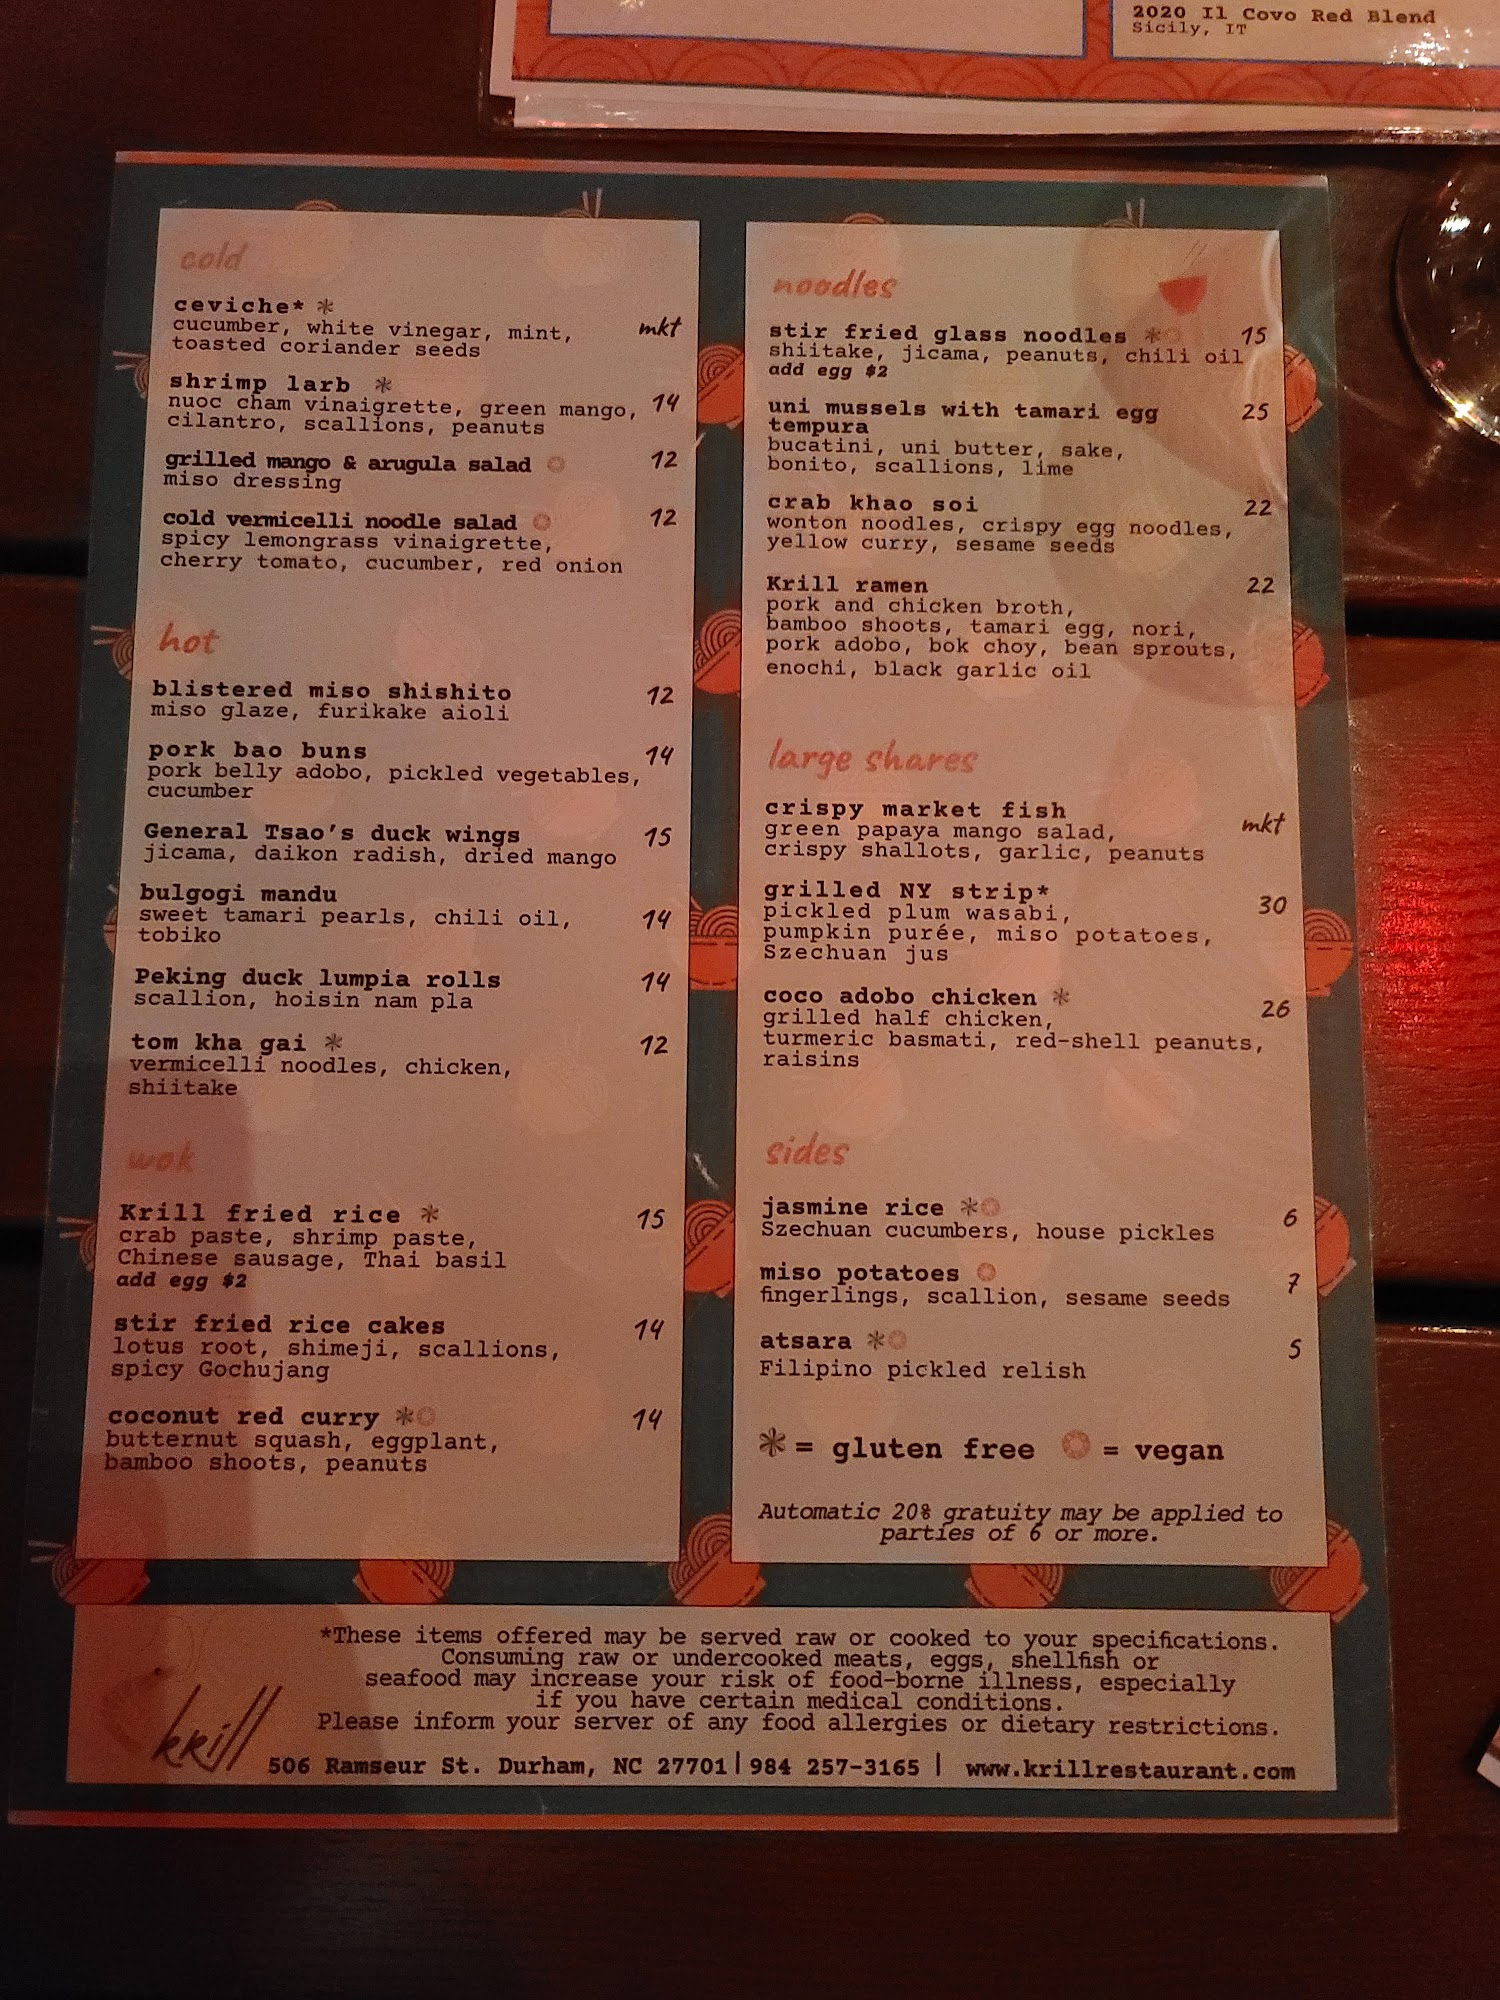 2020 Il Covo Red Blend
Sicily, IT
cold
ceviche*
cucumber, white vinegar, mint,
toasted coriander seeds
mkt
shrimp larb
nuoc cham vinaigrette, green mango,
cilantro, scallions, peanuts
14
grilled mango & arugula salad
miso dressing
12
cold vermicelli noodle salad
spicy lemongrass vinaigrette,
cherry tomato, cucumber, red onion
12
hot
blistered miso shishito
miso glaze, furikake aioli
12
pork bao buns
pork belly adobo, pickled vegetables,
cucumber
14
General Tsao's duck wings
jicama, daikon radish, dried mango
15
bulgogi mandu
sweet tamari pearls, chili oil,
tobiko
14
Peking duck lumpia rolls
scallion, hoisin nam pla
14
tom kha gai
vermicelli noodles, chicken,
shiitake
12
wok
Krill fried rice
crab paste, shrimp paste,
Chinese sausage, Thai basil
add egg $2
15
stir fried rice cakes
lotus root, shimeji, scallions,
spicy Gochujang
14
coconut red curry
butternut squash, eggplant,
bamboo shoots, peanuts
14
noodles
stir fried glass noodles
shiitake, jicama, peanuts, chili oil
add egg $2
15
uni mussels with tamari egg
tempura
bucatini, uni butter, sake,
bonito, scallions, lime
25
crab khao soi
wonton noodles, crispy egg noodles,
yellow curry, sesame seeds
22
Krill ramen
pork and chicken broth,
bamboo shoots, tamari egg, nori,
pork adobo, bok choy, bean sprouts,
enochi, black garlic oil
22
large shares
crispy market fish
green papaya mango salad,
crispy shallots, garlic, peanuts
mkt
grilled NY strip*
pickled plum wasabi,
pumpkin purée, miso potatoes,
Szechuan jus
30
coco adobo chicken
grilled half chicken,
turmeric basmati, red-shell peanuts,
raisins
26
sides
jasmine rice
Szechuan cucumbers, house pickles
6
miso potatoes
fingerlings, scallion, sesame seeds
7
atsara
Filipino pickled relish
5
= gluten free = vegan
Automatic 20% gratuity may be applied to
parties of 6 or more.
*These items offered may be served raw or cooked to your specifications.
Consuming raw or undercooked meats, eggs, shellfish or
seafood may increase your risk of food-borne illness, especially
if you have certain medical conditions.
Please inform your server of any food allergies or dietary restrictions.
krill
506 Ramseur St. Durham, NC 27701 | 984 257-3165 | www.krillrestaurant.com